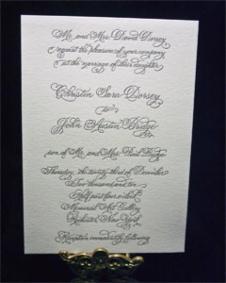 Mr. and Mrs. David Dorsey
request the pleasure of your company
at the marriage of their daughter
Christen Sara Dorsey
to
John Austin Bridge
son of Mr. and Mrs. Paul Bridge
Thursday, the twenty-third of December
Two thousand and ten
Half past four o'clock
Memorial Art Gallery
Rochester, New York
Reception immediately following